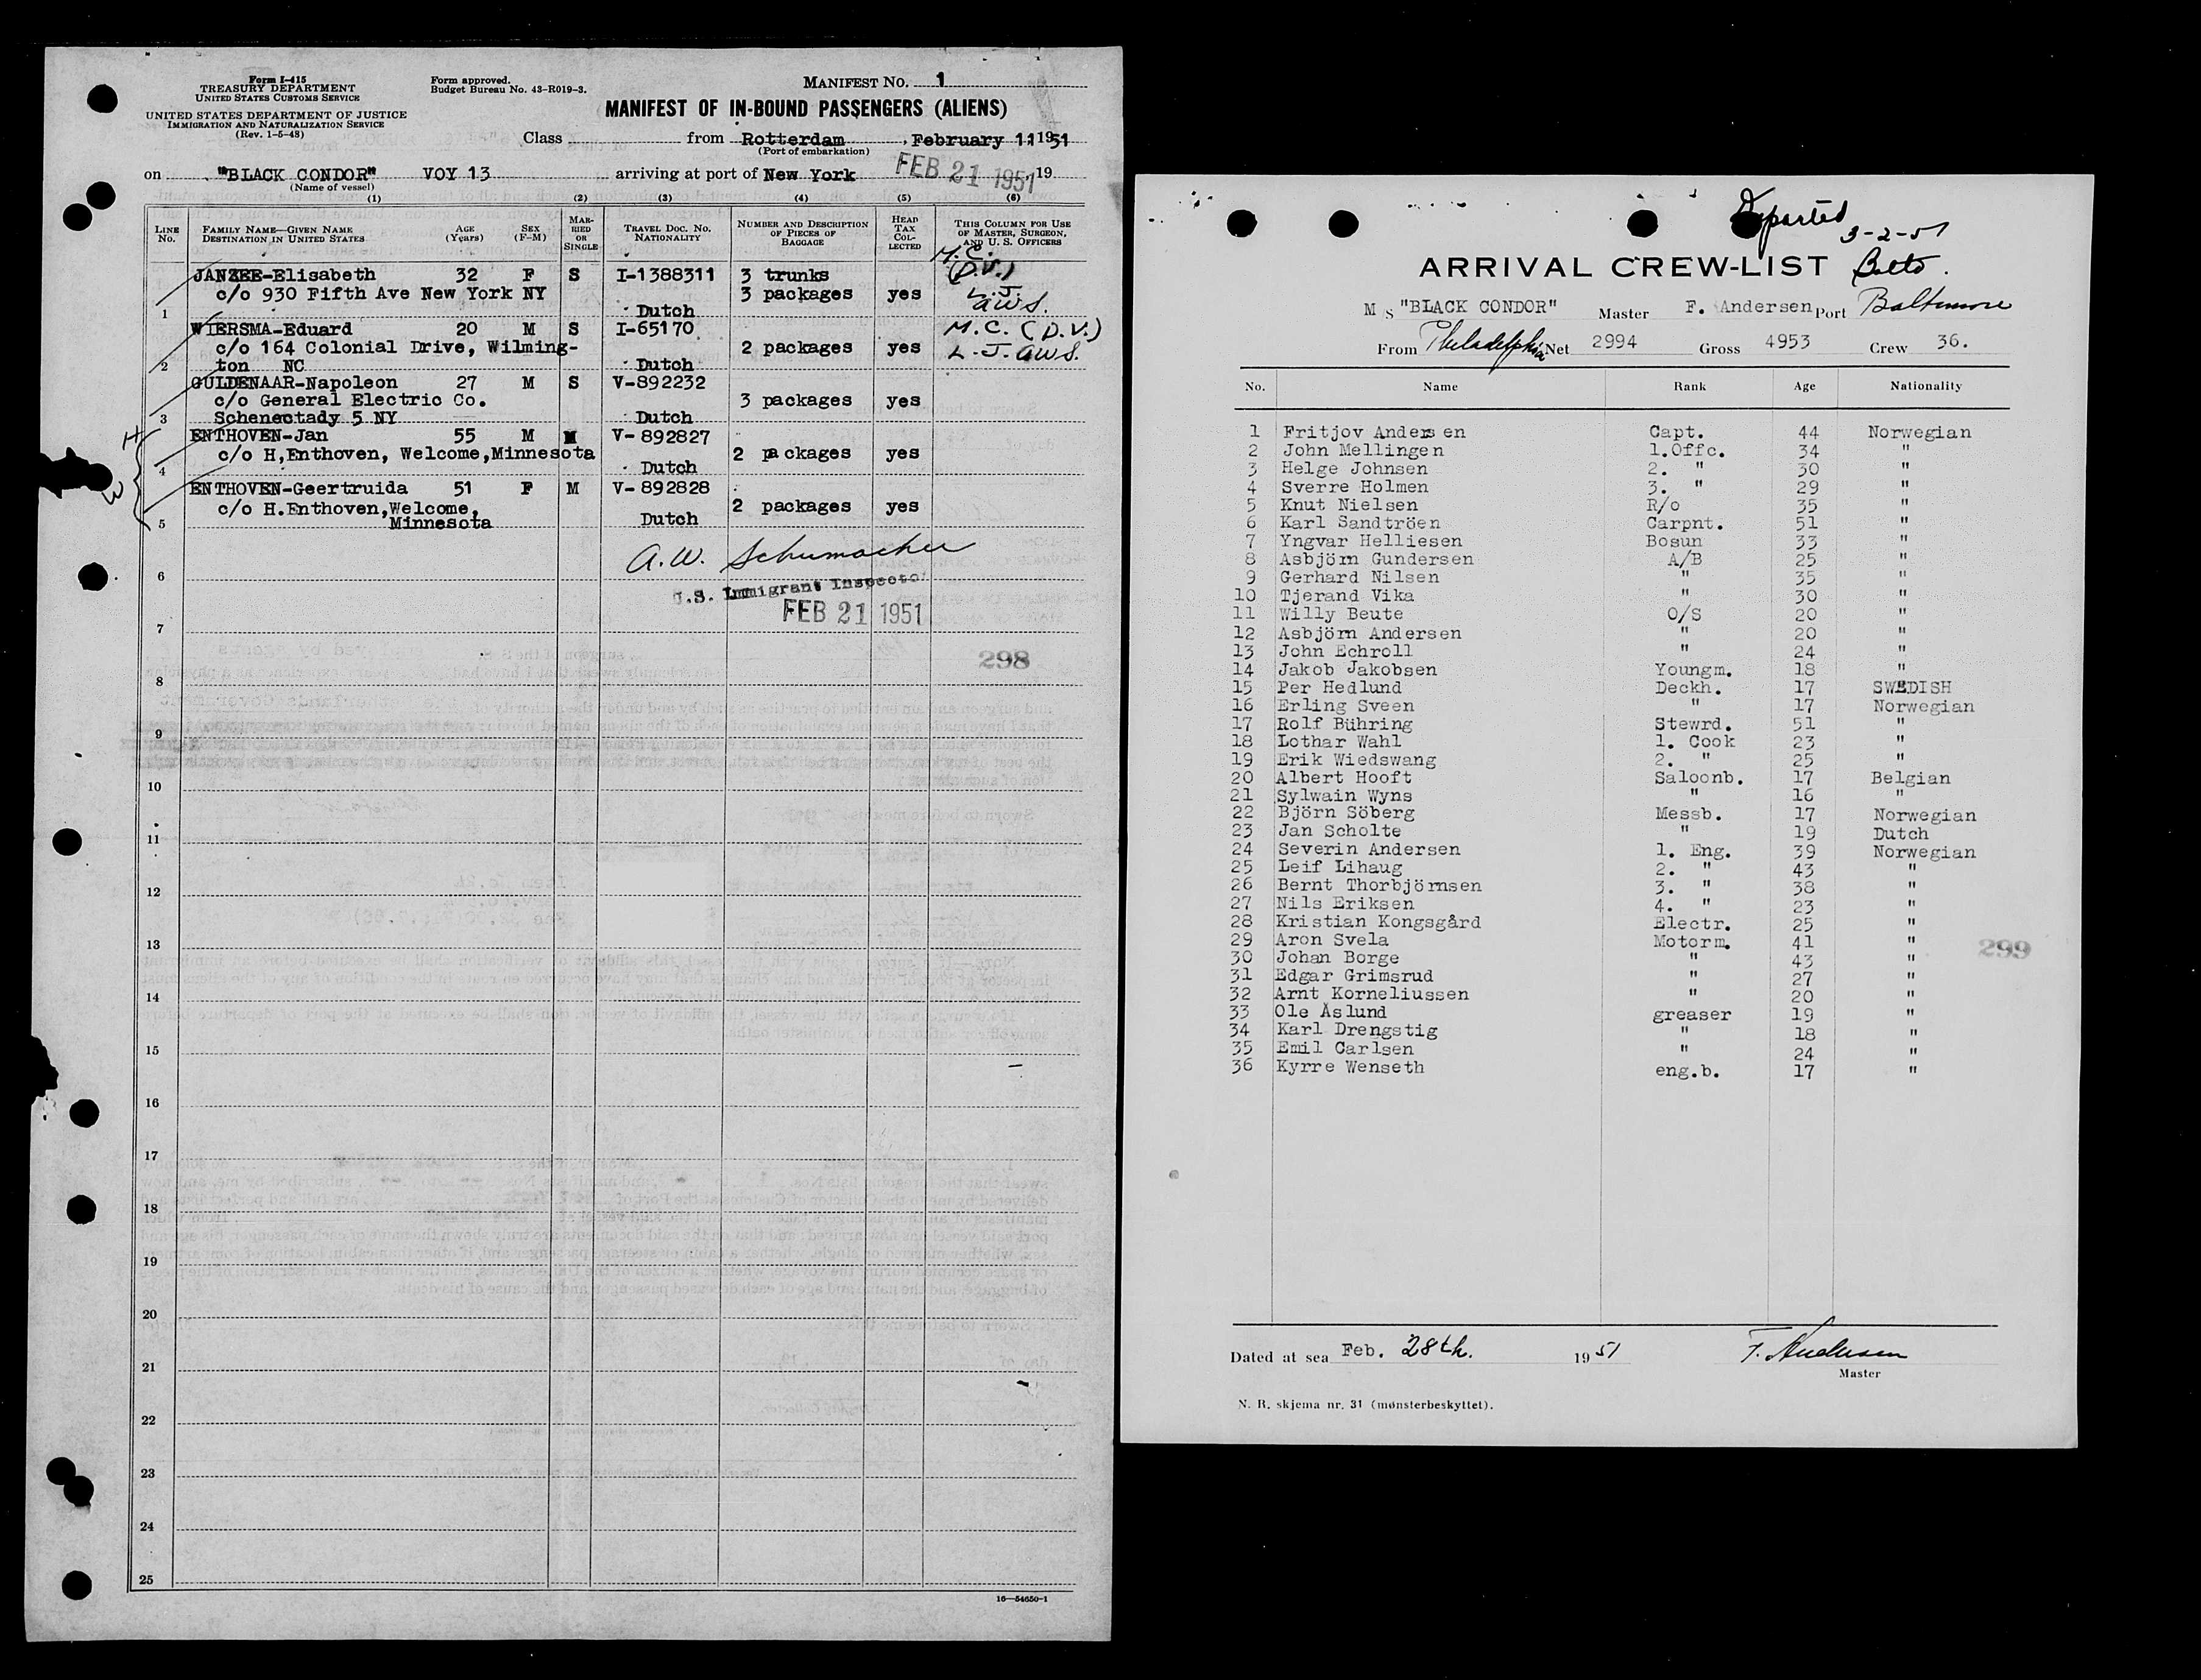 Form I-415
TREASURY DEPARTMENT
UNITED STATES CUSTOMS SERVICE
UNITED STATES DEPARTMENT OF JUSTICE
IMMIGRATION AND NATURALIZATION SERVICE
(Rev. 1-5-48)
Form approved.
Budget Bureau No. 43-R019-3.
MANIFEST NO. 1
MANIFEST OF IN-BOUND PASSENGERS (ALIENS)
Class from Rotterdam, February 11 1951
(Port of embarkation)
on "BLACK CONDOR" VOY 13 arriving at port of New York FEB 21 1951 19
(Name of vessel)
(1) (2) (3) (4) (5) (6)
LINE No. FAMILY NAME—GIVEN NAME DESTINATION IN UNITED STATES AGE (Years) SEX (F-M) MARRIED OR SINGLE TRAVEL DOC. NO. NATIONALITY NUMBER AND DESCRIPTION OF PIECES OF BAGGAGE HEAD TAX COLLECTED THIS COLUMN FOR USE OF MASTER, SURGEON, AND U. S. OFFICERS
JANZEE-Elisabeth 32 F S I-1388311 3 trunks M.C. (D.V.)
c/o 930 Fifth Ave New York NY 3 packages yes L.J.
1 Dutch AWS.
WIERSMA-Eduard 20 M S I-65170 M.C. (D.V.)
c/o 164 Colonial Drive, Wilming- 2 packages yes L.J. AWS.
2 ton NC Dutch
GULDENAAR-Napoleon 27 M S V-892232
c/o General Electric Co. 3 packages yes
3 Schenectady 5 NY Dutch
ENTHOVEN-Jan 55 M M V-892827
c/o H,Enthoven, Welcome,Minnesota 2 packages yes
4 Dutch
ENTHOVEN-Geertruida 51 F M V-892828
c/o H.Enthoven,Welcome, 2 packages yes
5 Minnesota Dutch
A.W. Schumacher
6
U.S. Immigrant Inspector
FEB 21 1951
7
298
8
9
10
11
12
13
14
15
16
17
18
19
20
21
22
23
24
25
16—54650-1
Departed
3-2-51
Balto.
ARRIVAL CREW-LIST
M S "BLACK CONDOR" Master F. Andersen Port Baltimore
From Philadelphia Net 2994 Gross 4953 Crew 36.
No. Name Rank Age Nationality
1 Fritjov Andersen Capt. 44 Norwegian
2 John Mellingen 1.Offc. 34 "
3 Helge Johnsen 2. " 30 "
4 Sverre Holmen 3. " 29 "
5 Knut Nielsen R/o 35 "
6 Karl Sandtröen Carpnt. 51 "
7 Yngvar Helliesen Bosun 33 "
8 Asbjörn Gundersen A/B 25 "
9 Gerhard Nilsen " 35 "
10 Tjerand Vika " 30 "
11 Willy Beute O/S 20 "
12 Asbjörn Andersen " 20 "
13 John Echroll " 24 "
14 Jakob Jakobsen Youngm. 18 "
15 Per Hedlund Deckh. 17 SWEDISH
16 Erling Sveen " 17 Norwegian
17 Rolf Bühring Stewrd. 51 "
18 Lothar Wahl 1. Cook 23 "
19 Erik Wiedswang 2. " 25 "
20 Albert Hooft Saloonb. 17 Belgian
21 Sylwain Wyns " 16 "
22 Björn Söberg Messb. 17 Norwegian
23 Jan Scholte " 19 Dutch
24 Severin Andersen 1. Eng. 39 Norwegian
25 Leif Lihaug 2. " 43 "
26 Bernt Thorbjörnsen 3. " 38 "
27 Nils Eriksen 4. " 23 "
28 Kristian Kongsgård Electr. 25 "
29 Aron Svela Motorm. 41 "
30 Johan Borge " 43 "
31 Edgar Grimsrud " 27 "
32 Arnt Korneliussen " 20 "
33 Ole Åslund greaser 19 "
34 Karl Drengstig " 18 "
35 Emil Carlsen " 24 "
36 Kyrre Wenseth eng.b. 17 "
299
Dated at sea Feb. 28th. 1951 F. Andersen
Master
N. R. skjema nr. 31 (mønsterbeskyttet).